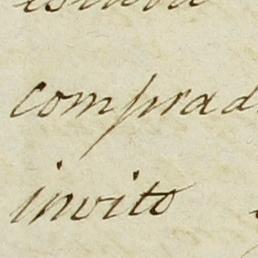 comprad
invito